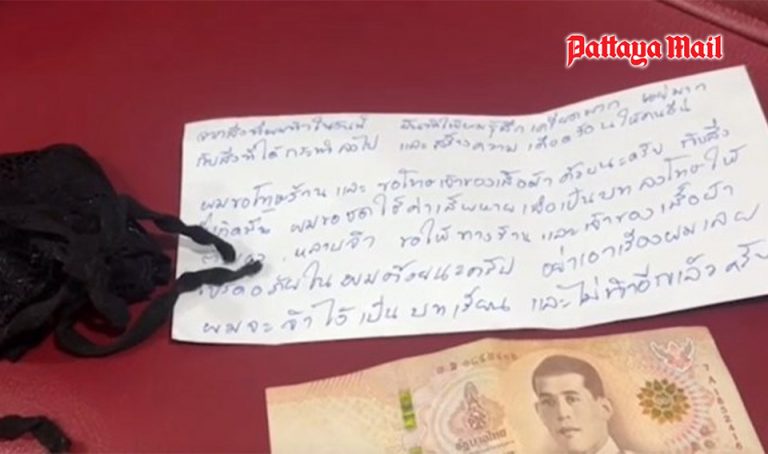 Pattaya Mail
จากสิ่งที่ผมทำในวันนี้ มันทำให้ผมรู้สึก เครียดมาก แย่มาก
กับสิ่งที่ได้กระทำลงไป และสร้างความเดือดร้อนให้คนอื่น
ผมขอโทษร้าน และ ขอโทษเจ้าของเสื้อผ้าด้วยนะครับ กับสิ่ง
ที่เกิดขึ้น ผมขอชดใช้ค่าเสียหายเพื่อเป็นบทลงโทษให้
หลาบจำ ขอให้ทางร้าน และเจ้าของเสื้อผ้า
โปรดอภัยในผมด้วยนะครับ อย่าเอาเรื่องผมเลย
ผมจะจำไว้เป็นบทเรียน และไม่ทำอีกแล้วครับ
รัฐบาลไทย